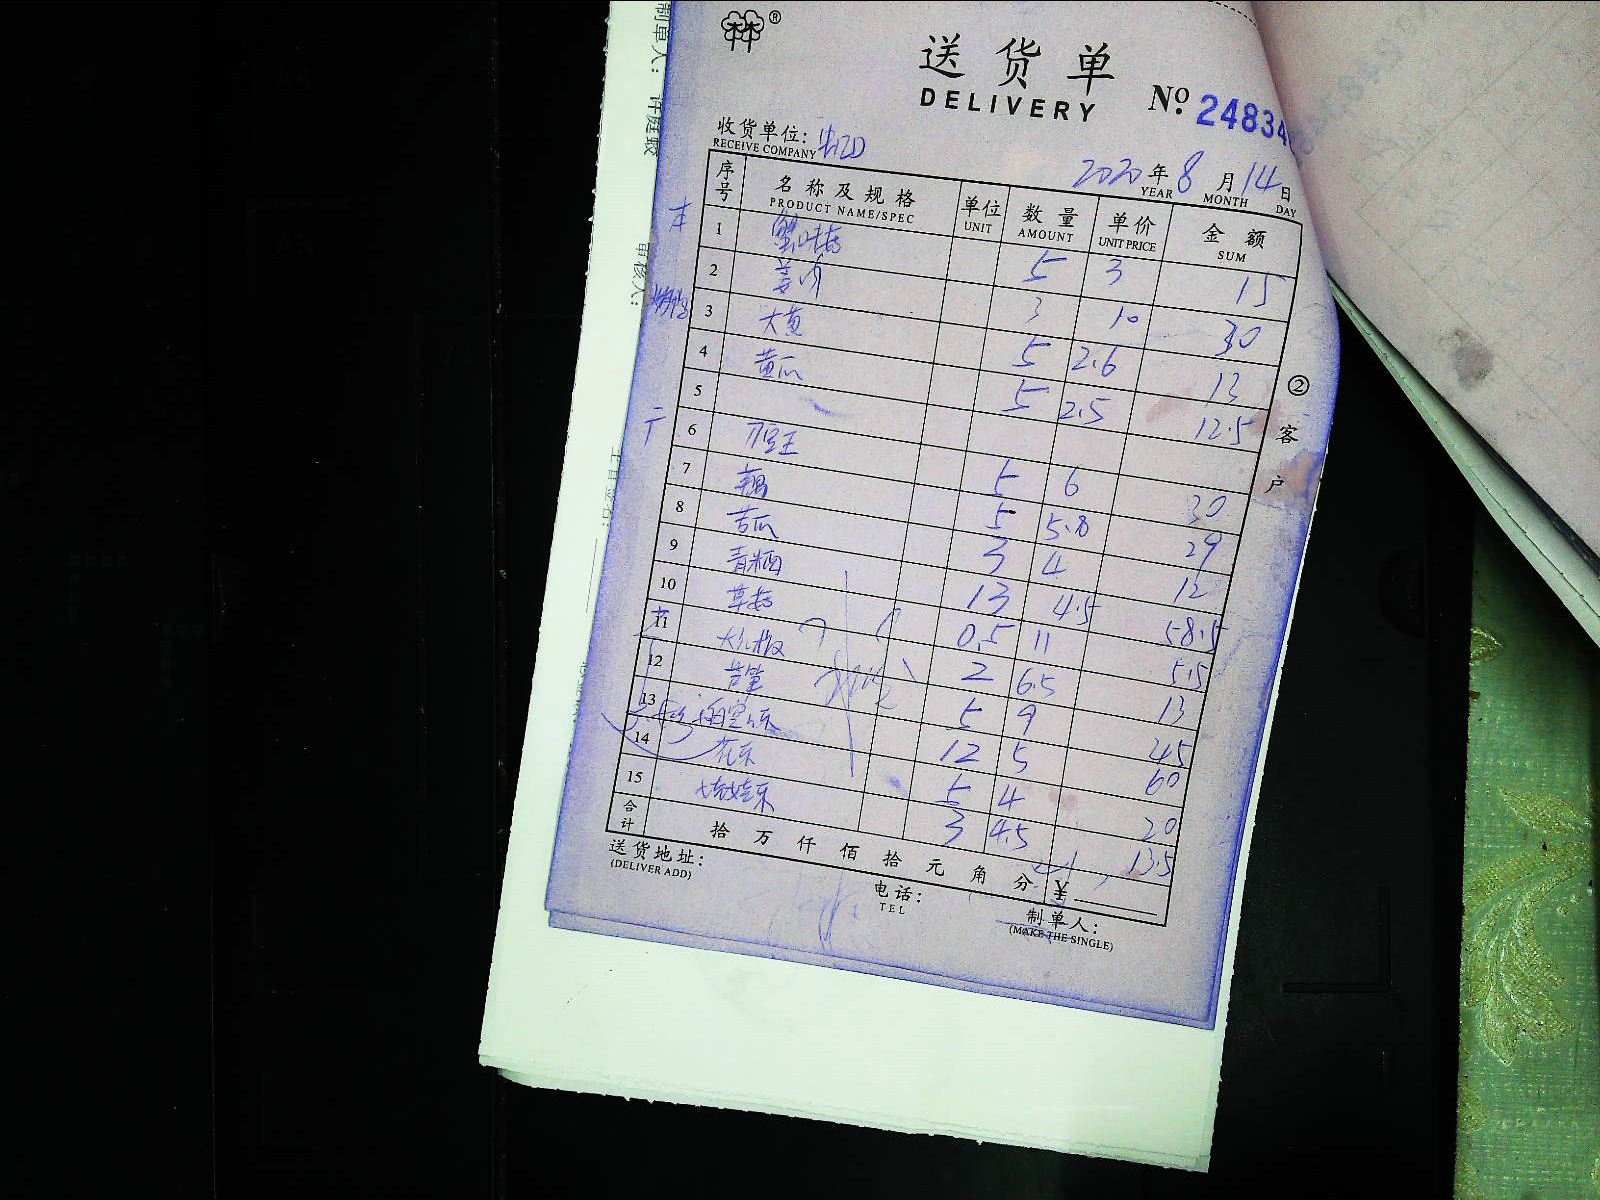 ®
送货单
DELIVERY
No. 24834
收货单位:
RECEIVE COMPANY
2020 年 8 月 14 日
YEAR MONTH DAY
序号 名称及规格 单位 数量 单价 金额
PRODUCT NAME/SPEC UNIT AMOUNT UNIT PRICE SUM
1 蟹味菇 5 3 15
2 姜 3 10 30
3 大葱 5 2.6 13
4 黄瓜 5 2.5 12.5
5
6 刀豆王 5 6 30
7 藕 5 5.8 29
8 苦瓜 3 4 12
9 青 13 4.5 58.5
10 草菇 0.5 11 5.5
11 2 6.5 13
12 芦笋 5 9 45
13 12 5 60
14 花菜 5 4 20
15 娃娃菜 3 4.5 13.5
合计 拾 万 仟 佰 拾 元 角 分 ¥
送货地址:
(DELIVER ADD)
电话:
TEL
制单人:
(MAKE THE SINGLE)
② 客户
制单人:
审核人: